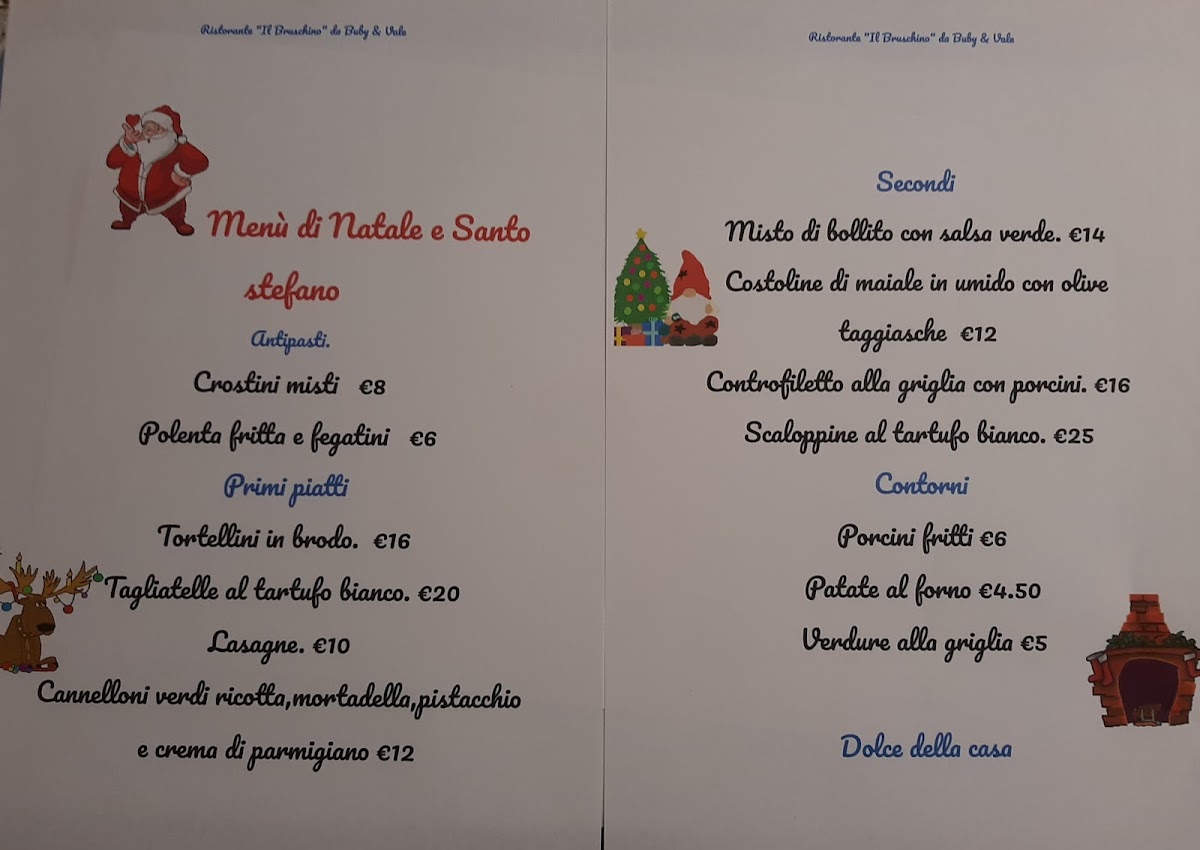 Ristorante "Il Bruschino" da Buby & Vale
Menù di Natale e Santo
stefano
Antipasti.
Crostini misti €8
Polenta fritta e fegatini €6
Primi piatti
Tortellini in brodo. €16
Tagliatelle al tartufo bianco. €20
Lasagne. €10
Cannelloni verdi ricotta,mortadella,pistacchio
e crema di parmigiano €12
Ristorante "Il Bruschino" da Buby & Vale
Secondi
Misto di bollito con salsa verde. €14
Costoline di maiale in umido con olive
taggiasche €12
Controfiletto alla griglia con porcini. €16
Scaloppine al tartufo bianco. €25
Contorni
Porcini fritti €6
Patate al forno €4.50
Verdure alla griglia €5
Dolce della casa